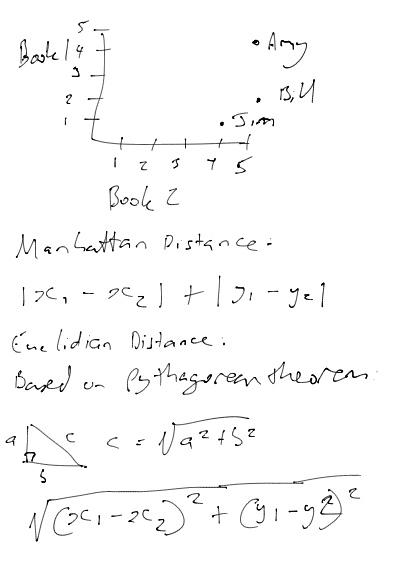 5
Book 1 4 • Amy
3
2 • Bill
1 • Jim
1 2 3 4 5
Book 2
Manhattan Distance:
|x₁ - x₂| + |y₁ - y₂|
Euclidian Distance:
Based on Pythagorean theorem:
a c c = √a² + b²
b
√(x₁ - x₂)² + (y₁ - y2)²